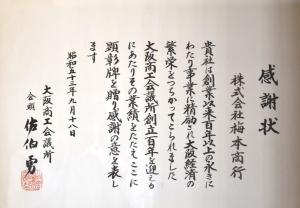 感謝状
株式会社梅本商行
貴社は創業以来百年以上の永きに
わたり事業に精励され大阪経済の
繁栄をつちかってこられました
大阪商工会議所創立百年を迎える
にあたりその業績をたたえここに
顕彰牌を贈り感謝の意を表し
ます
昭和五十三年九月十八日
大阪商工会議所
会頭 佐伯勇